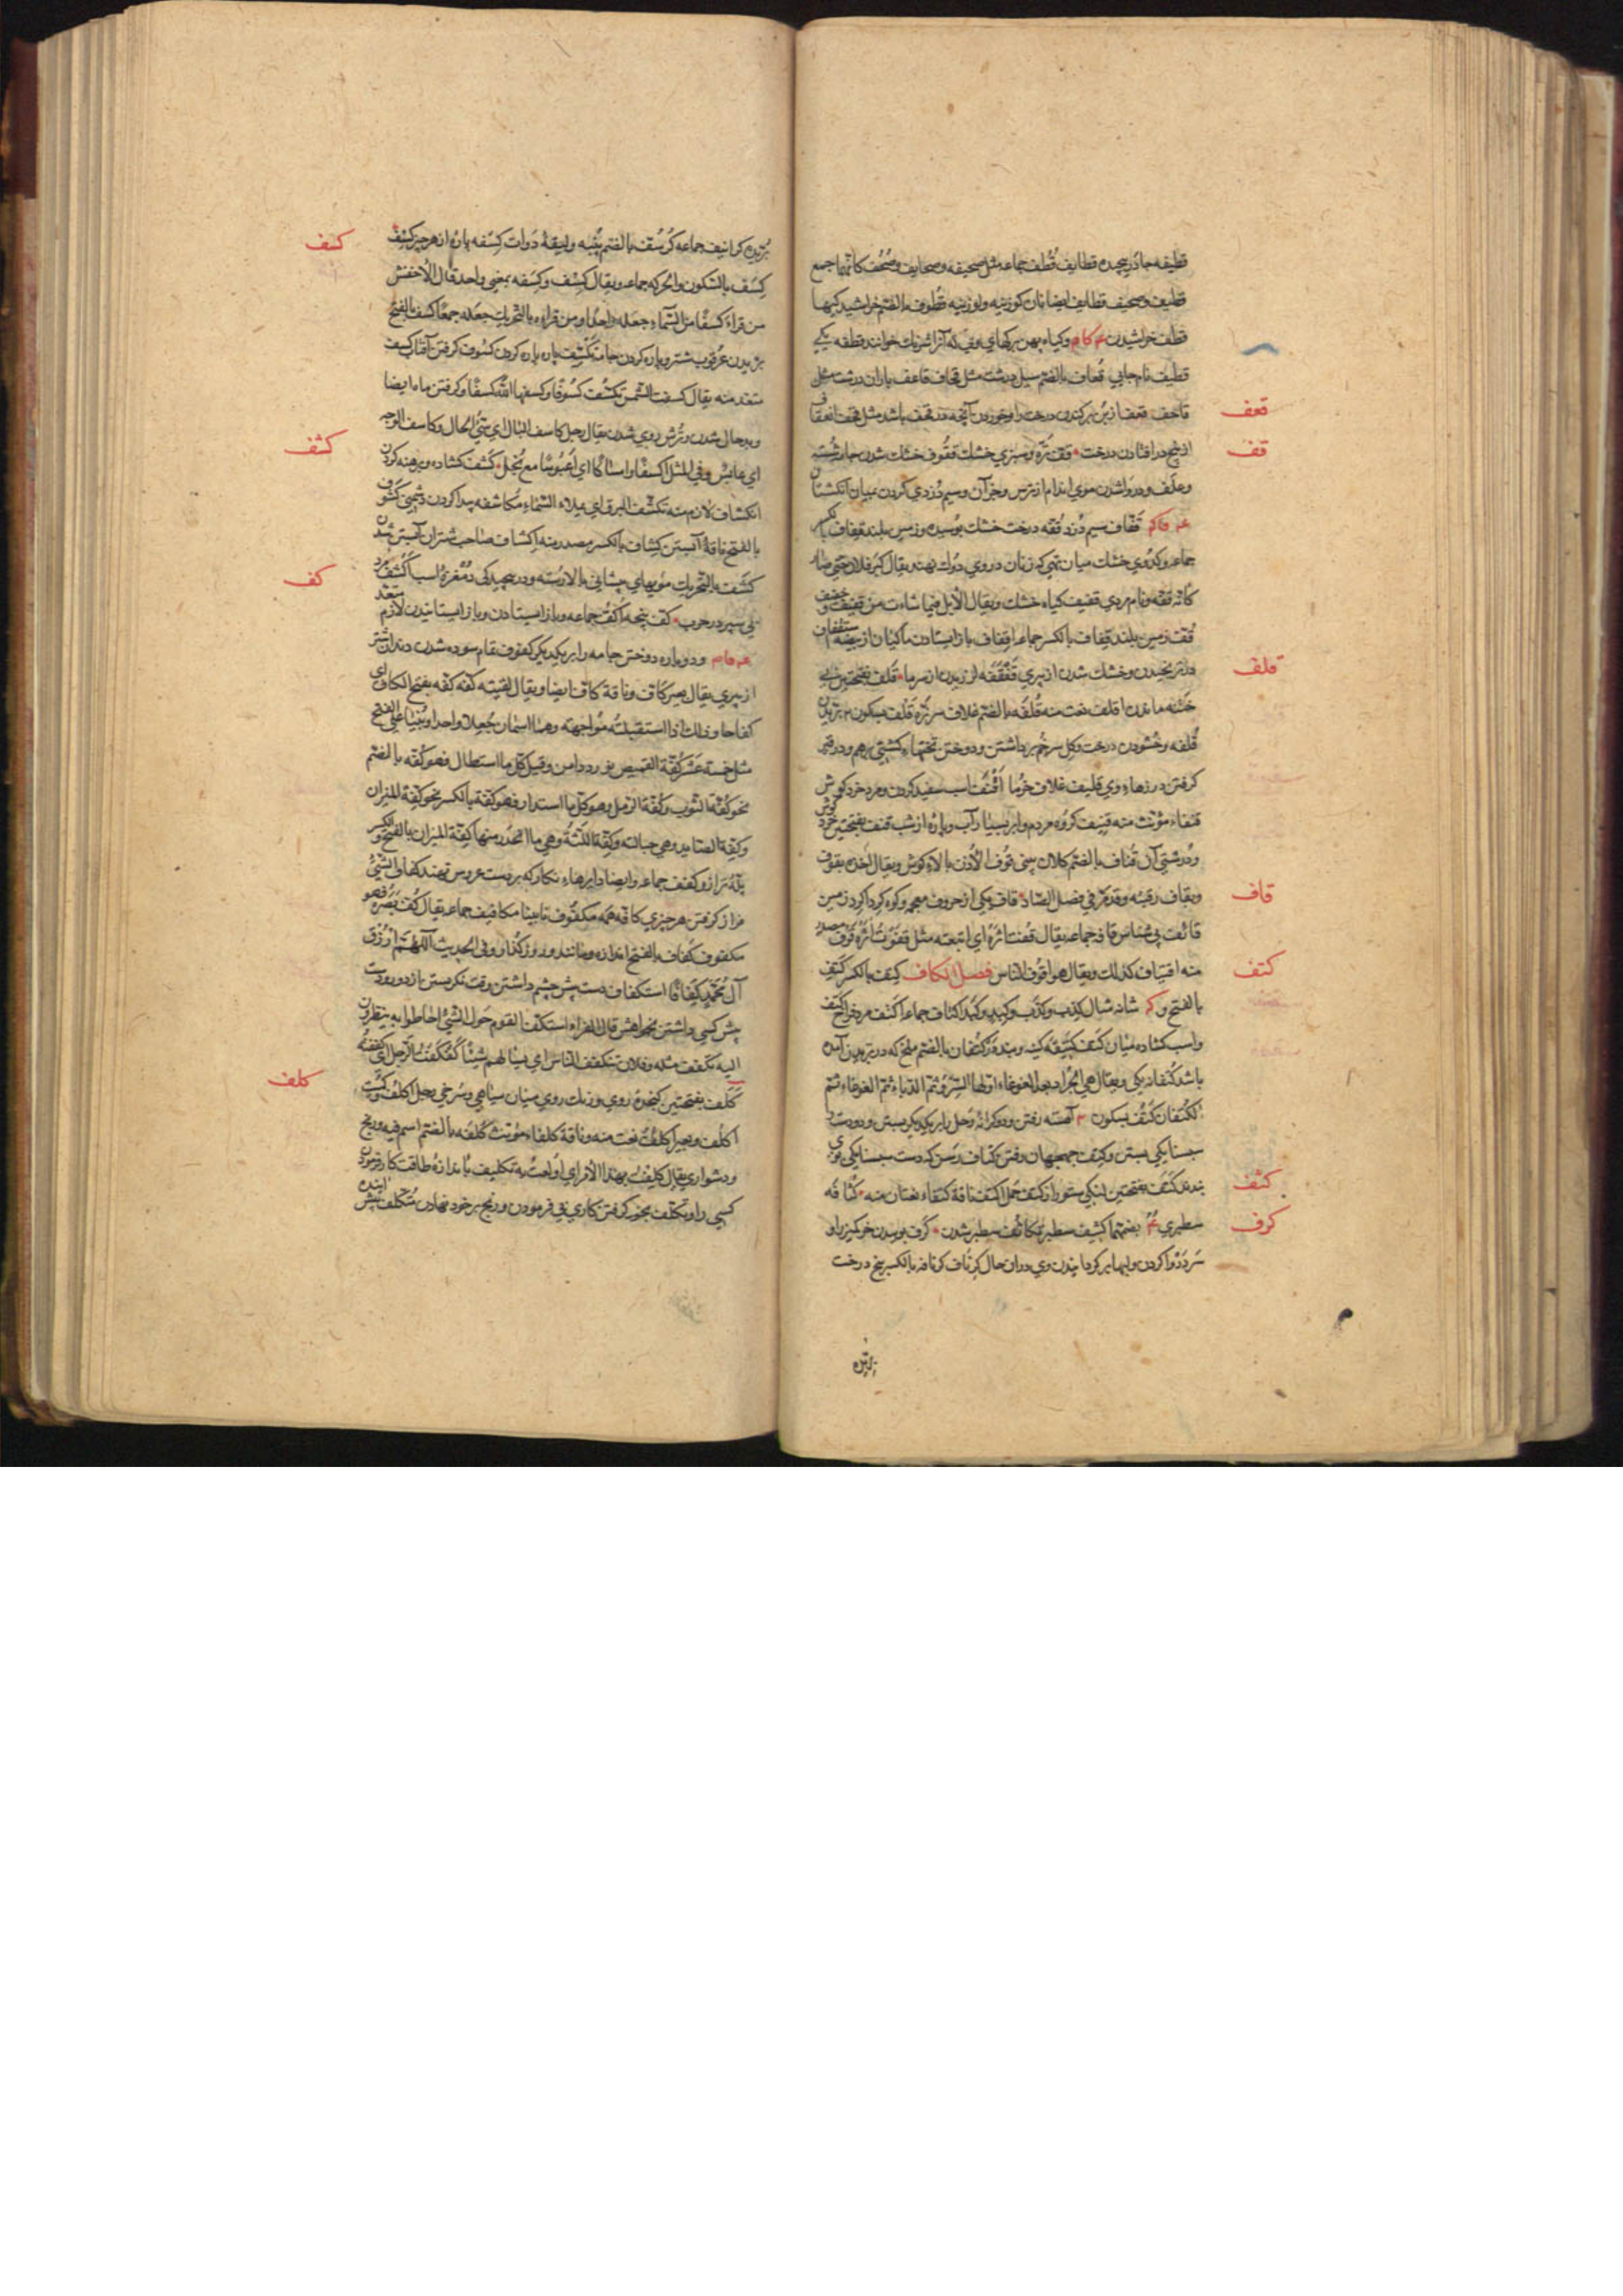 قطیفه چادر پیچیده قطایف قُطُف جماعه مثل صحیفه وصحایف وصُحُف کانّها جمع
قطیف وصحیف قطایف ایضا نان کوزینه ولوزینه قطوف بالضم خراشیدکیها
قطف خراشیدن عه کام وکیاه پهن برکهای وی که آنرا سرنك خوانند قطفه یکی
قطیف نام جایی قُعاف بالضم سیل درشت مثل قحاف قاعف باران درشت مثل
قعف
قاحف قعف از بن برکندن درخت را وخوردن آنچه در قحف باشد مثل قحف انعقاف
قف
از بیخ در افتادن درخت قف تره وسبزی خشك قفوف خشك شدن جامه شسته
وعلف ودروا شدن موی اندام از ترس وجز آن وسیم دزدی کردن بمیان انکشتان
عه فاکم قفّاف سیم دزد قُفّه درخت خشك بوسیده وزمین بلند قفاف بالکسر
جماعه وکدوی خشك میان تهی که زنان در وی دوك نهند ویقال کبر فلان حتی صار
کانه قفّه ونام مردی قفیف کیاه خشك ویقال الابل فیما شاءت من قفیف وجفیف
قُفّ زمین بلند قِفاف بالکسر جماعه اقفاف باز ایستادن ماکیان از بیضه استقفاف
قلف
در ترنجیدن وخشك شدن از پیری قَفقَفه لرزیدن از سرما قَلَف بفتحتین بی
ختنه ماندن اقلف نعت منه قُلفَه بالضم غلاف سر نره قَلف بسکون بریدن
قُلفه وخشودن درخت وکل سرخم برداشتن ودوختن تختهاء کشتی برهم ودر قیر
کرفتن درزهاء وی قلیف غلاف خرما اَقنف اسب سفید کردن ومرد خرد کوش
قنفاء مؤنث منه قنیف کروه مردم وابر بسیار آب وپاره از شب قنف بفتحتین خرد کوش
ودرشتی آن قُناف بالضم کلان بینی قوف الاُذن بالاء کوش ویقال اخذه بقوف
قاف
وبقاف رقبته وقد مرّ فی فصل الصاد قاف یکی از حروف معجم وکوه کرداکرد زمین
قائف پی شناس قافه جماعه یقال قُفتُ اثرَهُ ای اتبعته مثل قفوتُ اثرَه قوف مصدر
کتف
منه اقتیاف کذلك ویقال هو اقوف الناس فصل الکاف کِتف بالکسر کَتِف
بالفتح وکر شانه مثال کِذب وکَذِب وکِبد وکَبِد اکتاف جماعه اَکتف مرد فراخ کتف
واسب کشاده میان کتف کتیفه کینه وبند در کُتفان بالضم ملخ که در پریدن آمده
باشد کُتفانه یکی ویقال هی الجراد بعد الغوغاء اوّلها السِّرو ثمّ الدباء ثمّ الغوغاء ثمّ
الکُتفان کَتف بسکون آهسته رفتن ودو کرانه رحل را بر یکدیکر بستن ودو دست را
سپس یکی بستن وکتف جمهجهان رفتن کِتاف رسن که دست سپس یکی بوی
کثف
بندند کَتَف بفتحتین لنکی ستور از کتف جمل اکتف ناقة کتفاء نعتان منه کَثافه
کرف
سطبری بضمهما کثیف سطبر تکاثف سطبر شدن کَرف بوییدن خر کمیز را و
سر دروا کردن ولبها برکردانیدن وی در آن حال کِرناف کرنافه بالکسر بیخ درخت
بریده
کسف
بُریده کرانیف جماعه کُرسُف بالضم پنبه ولیقهٔ دوات کِسفه پاره از هر چیز کِسَف
کِسف بالسکون والحرکه جماعه ویقال کِسف وکِسفه بمعنی واحد قال الاخفش
من قراء کِسفًا من السماء جعله واحدا ومن قراءه بالتحریك جعله جمعا کسف بالفتح
بریدن عرقوب شتر وپاره کردن جامه تکسیف پاره پاره کردن کسوف کرفتن آفتاب کسف
متعد منه یقال کسفت الشمس تکسف کسوفا وکسفها الله کسفًا وکرفتن ماه ایضا
کشف
وبدحال شدن وترش روی شدن یقال رجل کاسف البال ای سیّئ الحال وکاسف الوجه
ای عابس وفی المثل اکسفًا وامساکا ای اعبوسا مع بخل کَشف کشاده وبرهنه کردن
انکشاف لازم منه تکشّف البرق ای ملاء السماء مکاشفه پیدا کردن دشمنی کشوف
بالفتح ناقهٔ آبستن کشاف بالکسر مصدر منه اکشاف صاحب شتران آبستن شدن
کف
کشف بالتحریك مویهای پیشانی بالا رُسته ودر پیچیدکی دمغزهٔ اسب اکشف مرد
بی سپر در حرب کف پنجه اکُفّ جماعه وباز ایستادن وباز ایستانیدن لازم متعد
عه فاعه ودو باره دوختن جامه را بر یکدیکر کفوف تمام سوده شدن دندان شتر
از پیری یقال بعیر کافّ وناقة کافّ ایضا ویقال لقیته کفّة کفّة بفتح الکاف ای
کفاحا وذلك اذا استقبلته مواجهة وهما اسمان جعلا واحدا وبُنیا علی الفتح
مثل خمسة عشر کُفّة القمیص نورد دامن وقیل کلّ ما استطال فهو کُفّه بالضم
نحو کُفّة الثوب وکُفّة الرمل وهو کلّ ما استدار فهو کِفّة بالکسر نحو کِفّة المیزان
وکِفّة الصاید وهی حبالته وکِفّة اللثة وهی ما انحدر منها کفّة المیزان بالفتح والکسر
پلّهٔ ترازو کِفف جماعه وایضا دایرهاء نکار که بر دست عروس نهند کفاف الشیئ
فراز کرفتن هر چیزی کافّه همه مکفوف نابینا مکافیف جماعه یقال کُفّ بصره فهو
مکفوف کفاف بالفتح اندازه ومانند وروز کذار وفی الحدیث اللّهمّ ارزق
آل محمّد کَفافًا استکفاف دست پیش چشم داشتن وقت نکریستن باز دور ودست
پیش کسی داشتن بخواهش قال الفراء استکفّ القوم حول الشیئ احاطوا به ینظرون
الیه تکفّف مثله وفلان یتکفّف الناس ای یسالهم شیئًا کفکفتُ الرجل ای کففته
کلف
کَلَف بفتحتین کنجدهٔ روی ورنك روی میان سیاهی وسرخی رجل اکلف وکمیت
اکلف وبعیر اکلف نعت منه وناقة کلفاء مؤنث کُلفَه بالضم اسم فیه ورنج
ودشواری یقال کلِفتُ بهذا الامر ای اولعت به تکلیف باندازهٔ طاقت کار فرمودن
کسی را وتکلّف بخود کرفتن کاری بی فرمودن ورنج بر خود نهادن متکلّف پیش آینده